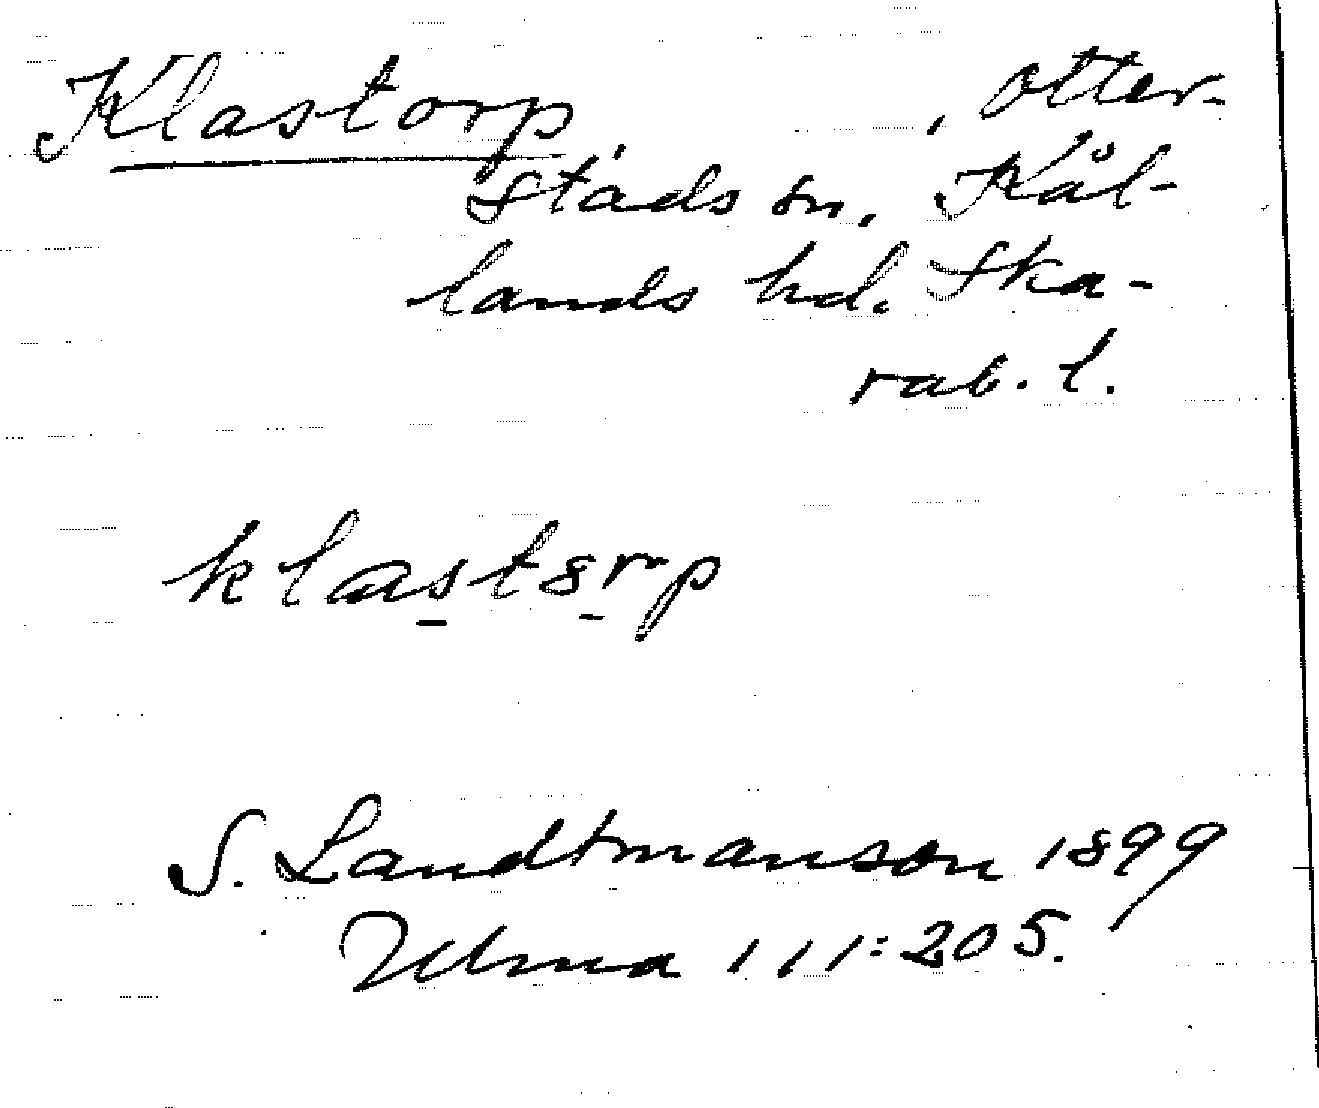 Klastorp, Otter-
stads sn. Kål-
lands hd. Ska-
rab. l.
klastɜrp
S. Landtmanson 1899
Ulma 111:205.